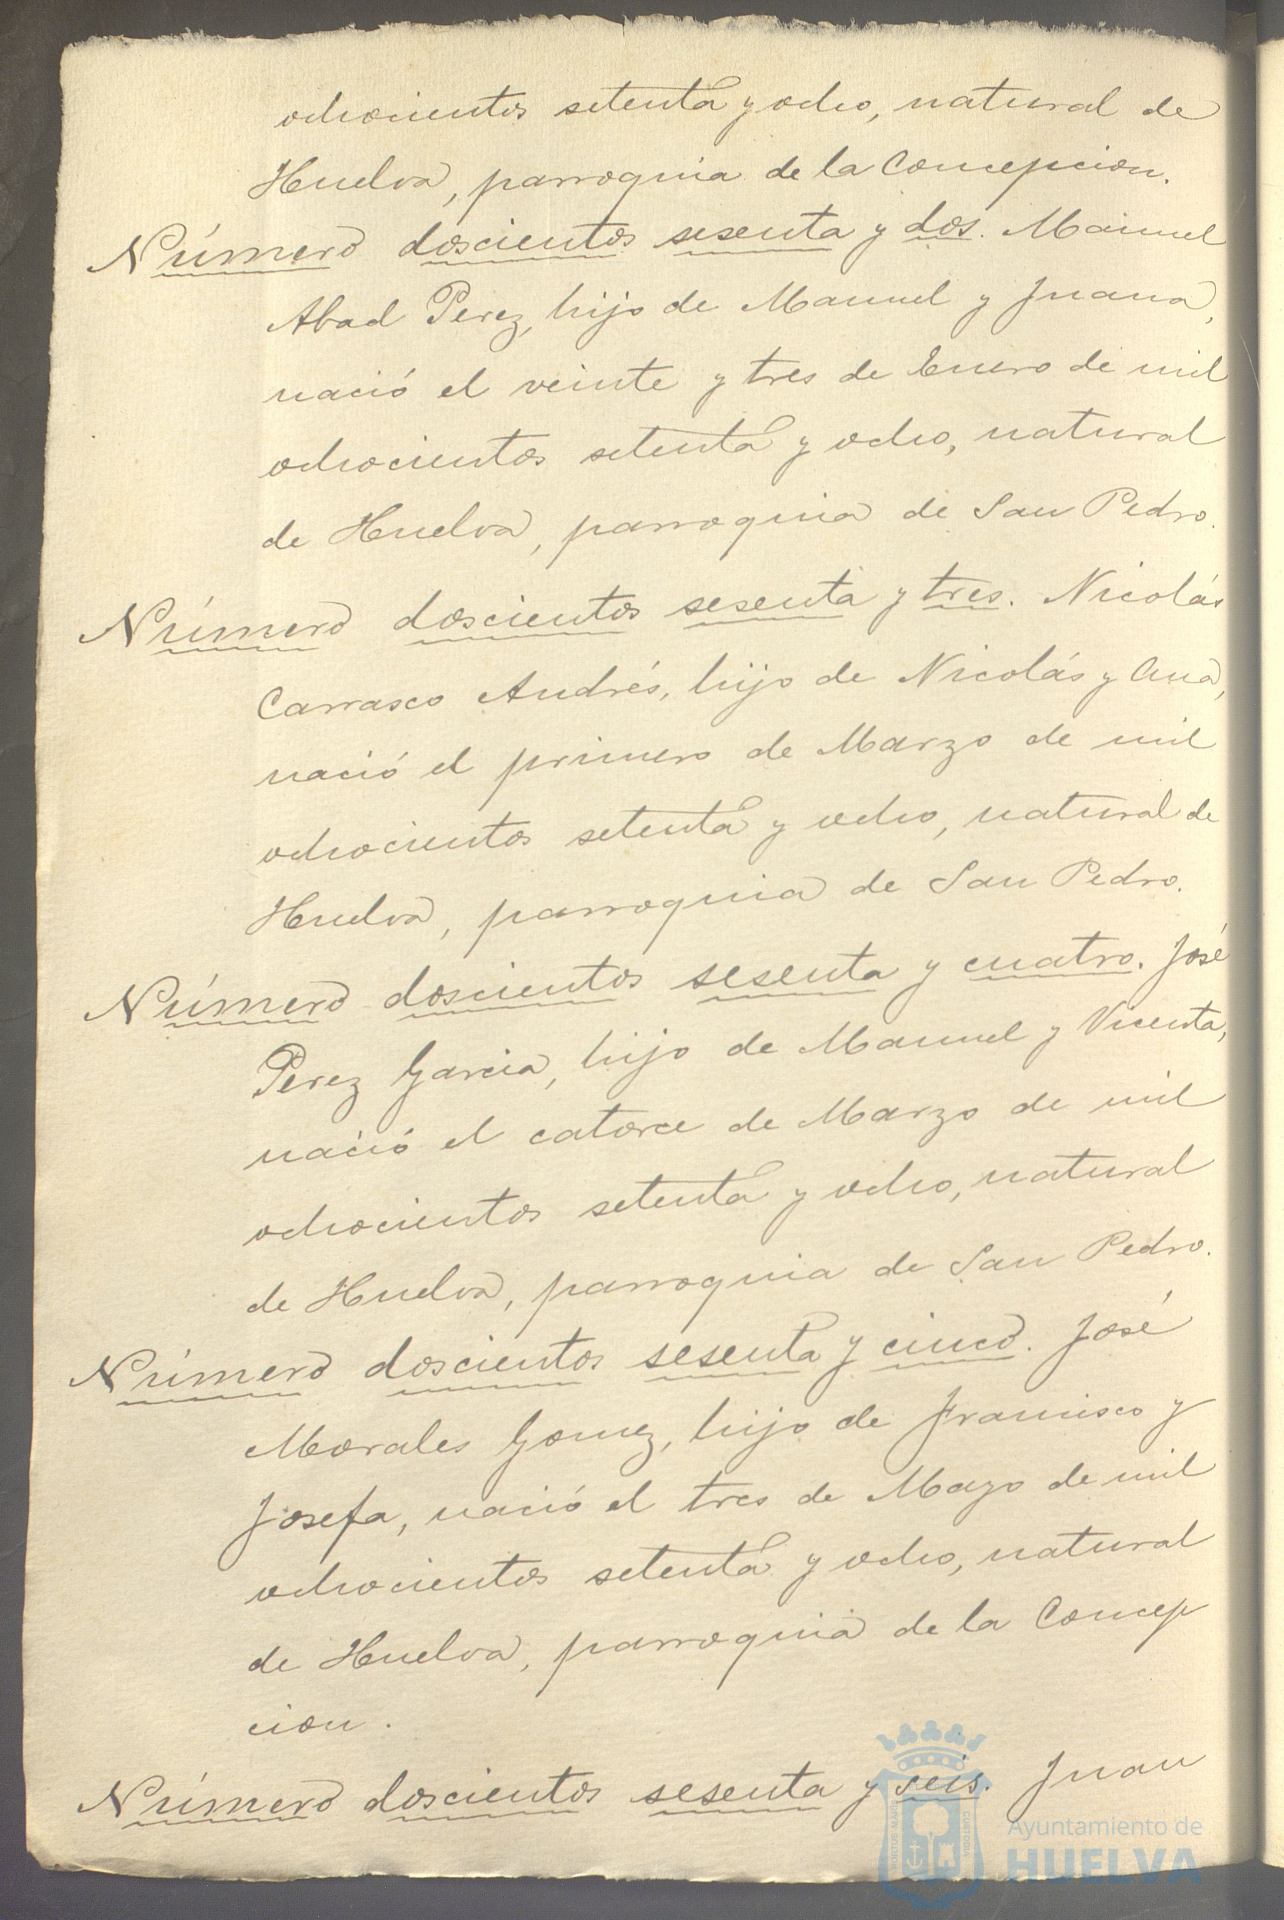 ochocientos setenta y ocho, natural de
Huelva, parroquia de la Concepcion.
Número doscientos sesenta y dos. Manuel
Abad Perez, hijo de Manuel y Juana,
nació el veinte y tres de Enero de mil
ochocientos setenta y ocho, natural
de Huelva, parroquia de San Pedro.
Número doscientos sesenta y tres. Nicolás
Carrasco Andrés, hijo de Nicolás y Ana,
nació el primero de Marzo de mil
ochocientos setenta y ocho, natural de
Huelva, parroquia de San Pedro.
Número doscientos sesenta y cuatro. José
Perez Garcia, hijo de Manuel y Vicenta,
nació el catorce de Marzo de mil
ochocientos setenta y ocho, natural
de Huelva, parroquia de San Pedro.
Número doscientos sesenta y cinco. José
Morales Gomez, hijo de Francisco y
Josefa, nació el tres de Mayo de mil
ochocientos setenta y ocho, natural
de Huelva, parroquia de la Concep
cion.
Número doscientos sesenta y seis. Juan
Ayuntamiento de
HUELVA